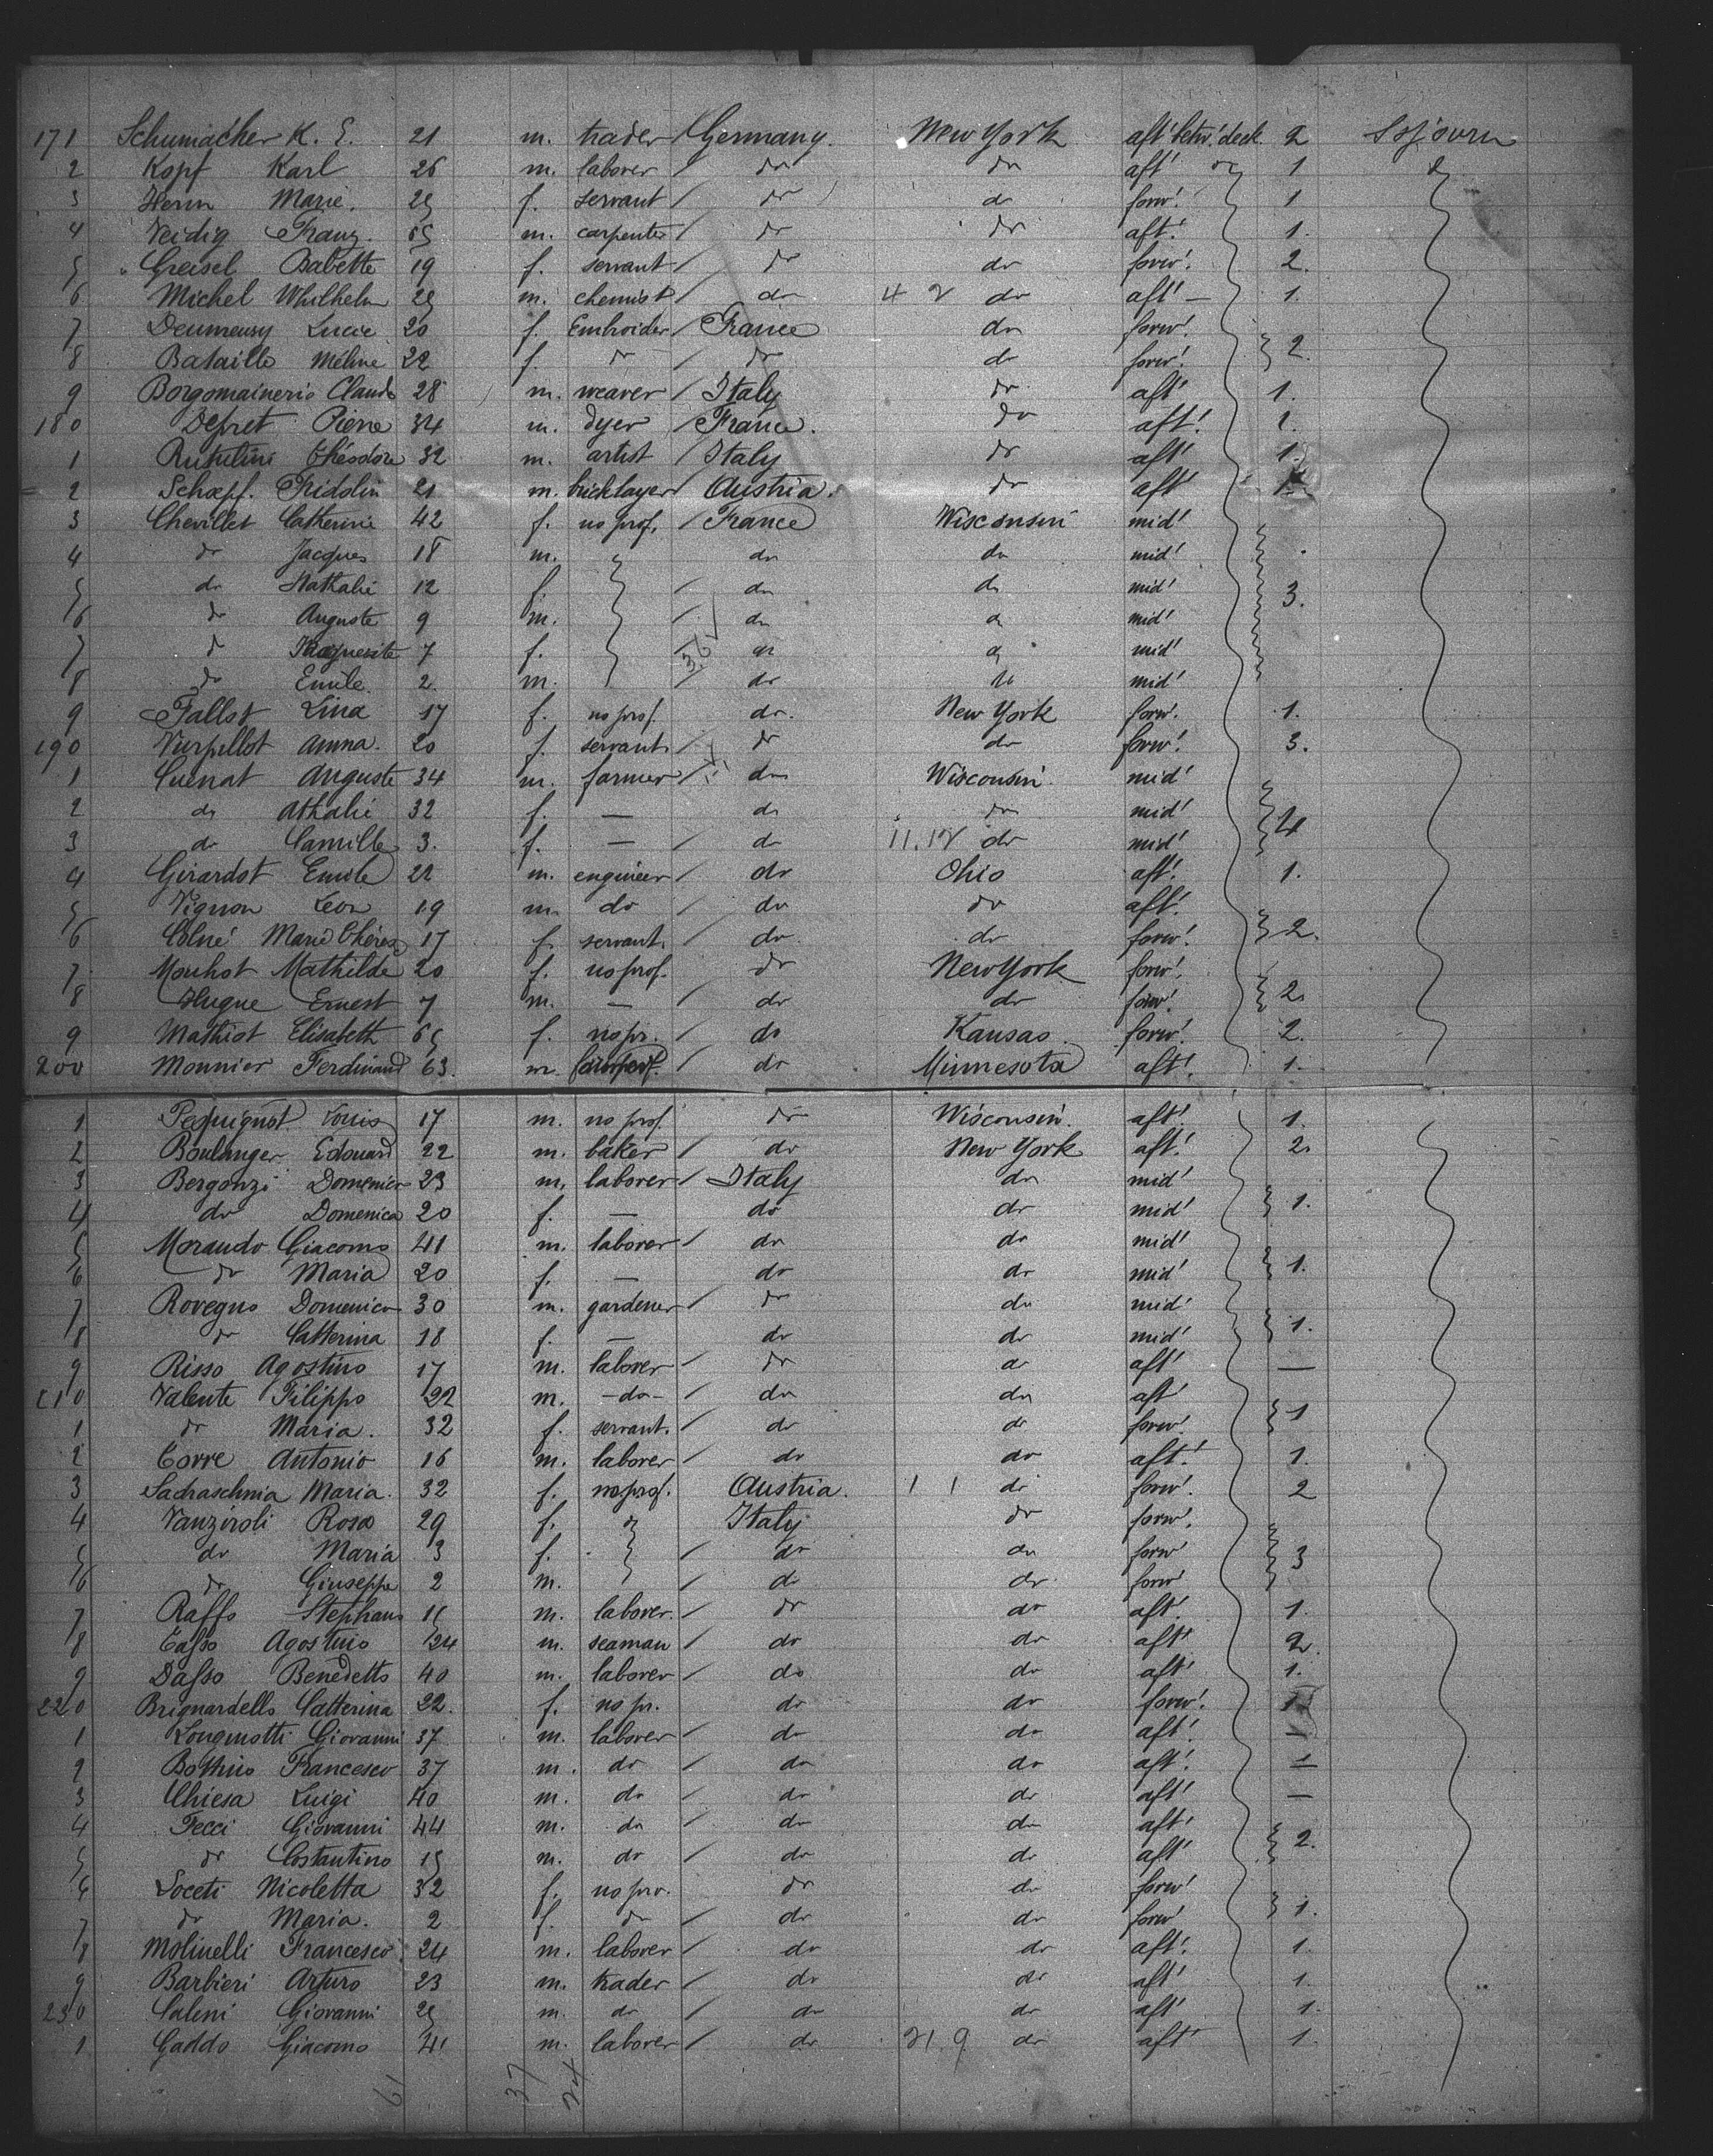 171 Schumacher K. E. 21 m. trader Germany. New York aft' betw. deck. 2 Sojourn
2 Kopf Karl 26 m. laborer do do aft' do 1 do
3 Henn Marie. 25 f. servant do do forw! 1
4 Neidig Franz. 65 m. carpenter do do aft! 1.
5 Greisel Babette 19 f. servant do do forw! 2.
6 Michel Whilhelm 25 m. chemist do 4 2 do aft' 1.
7 Deumeusy Lucie 20 f. Embroider France do forw!
8 Bataille Méline 22 f. do do do forw! 2.
9 Borgomainerio Claude 28 m. weaver Italy do aft' 1.
180 Depret Pierre 34 m. dyer France. do aft! 1.
1 Rutulini Théodore 32 m. artist Italy do aft' 1.
2 Schœpf. Fridolin 21 m. bricklayer Austria. do aft' 1.
3 Chevillet Catherine 42 f. no prof. France Wisconsin mid'
4 do Jacques 18 m. do do mid'
5 do Nathalie 12 f. do do mid' 3.
6 do Auguste 9 m. do do mid'
7 do 7 f. do do mid'
8 do Emile 2. m. do do mid'
9 Fallot Lina 17 f. no prof. do. New York forw. 1.
190 Vurpillot Anna. 20 f. servant. do do forw! 3.
1 Cuenat Auguste 34 m. farmer do Wisconsin mid'
2 do Athalie 32 f. — do do mid' 4
3 do Camille 3. f. — do 11.12 do mid'
4 Girardot Emile 22 m. engineer do Ohio aft! 1.
5 Vignon Leon 19 m. do do do aft!
6 Colné Marie Thérèse 17 f. servant. do do forw! 2.
7 Mouhot Mathilde 20 f. no prof. do New York forw!
8 Hugue Ernest 7 m. — do do forw! 2.
9 Mathiot Elisabeth 65 f. no pr. do Kansas forw! 2.
200 Monnier Ferdinand 63. m. do Minnesota aft! 1.
1 Pequignot Louis 17 m. no prof. do Wisconsin. aft! 1.
2 Boulanger Edouard 22 m. baker do New York aft! 2.
3 Bergonzi Domenico 23 m. laborer Italy do mid'
4 do Domenica 20 f. — do do mid' 1.
5 Morando Giacomo 41 m. laborer do do mid'
6 do Maria 20 f. — do do mid' 1.
7 Rovegno Domenico 30 m. gardener do do mid'
8 do Catterina 18 f. — do do mid' 1.
9 Risso Agostino 17 m. laborer do do aft' —
210 Valente Filippo 22 m. -do- do do aft'
1 do Maria. 32 f. servant. do do forw! 1
2 Torre Antonio 16 m. laborer do do aft! 1.
3 Sachaschnia Maria. 32 f. no prof. Austria. 1 1 do forw! 2
4 Vanziroli Rosa 29 f. do Italy do forw.
5 do Maria 3 f. do do forw' 3
6 do Giuseppe 2 m. do do forw'
7 Raffo Stephano 15 m. laborer. do do aft! 1.
8 Tasso Agostino 24 m. seaman do do aft' 2.
9 Dasso Benedetto 40 m. laborer do do aft' 1.
220 Brignardello Catterina 22. f. no pr. do do forw! 1
1 Longinotti Giovanni 37 m. laborer do do aft! —
2 Bottino Francesco 37 m. do do do aft! 1
3 Chiesa Luigi 40 m. do do do aft' —
4 Fecci Giovanni 44 m. do do do aft'
5 do Costantino 15 m. do do do aft' 2.
6 Loceti Nicoletta 32 f. no pro. do do forw'
7 do Maria. 2 f. do do do forw' 1.
8 Molinelli Francesco 24 m. laborer do do aft! 1.
9 Barbieri Arturo 23 m. trader do do aft' 1.
230 Caleni Giovanni 25 m. do do do aft' 1.
1 Gaddo Giacomo 41 m. laborer do 21.9 do aft' 1.
61 37 24